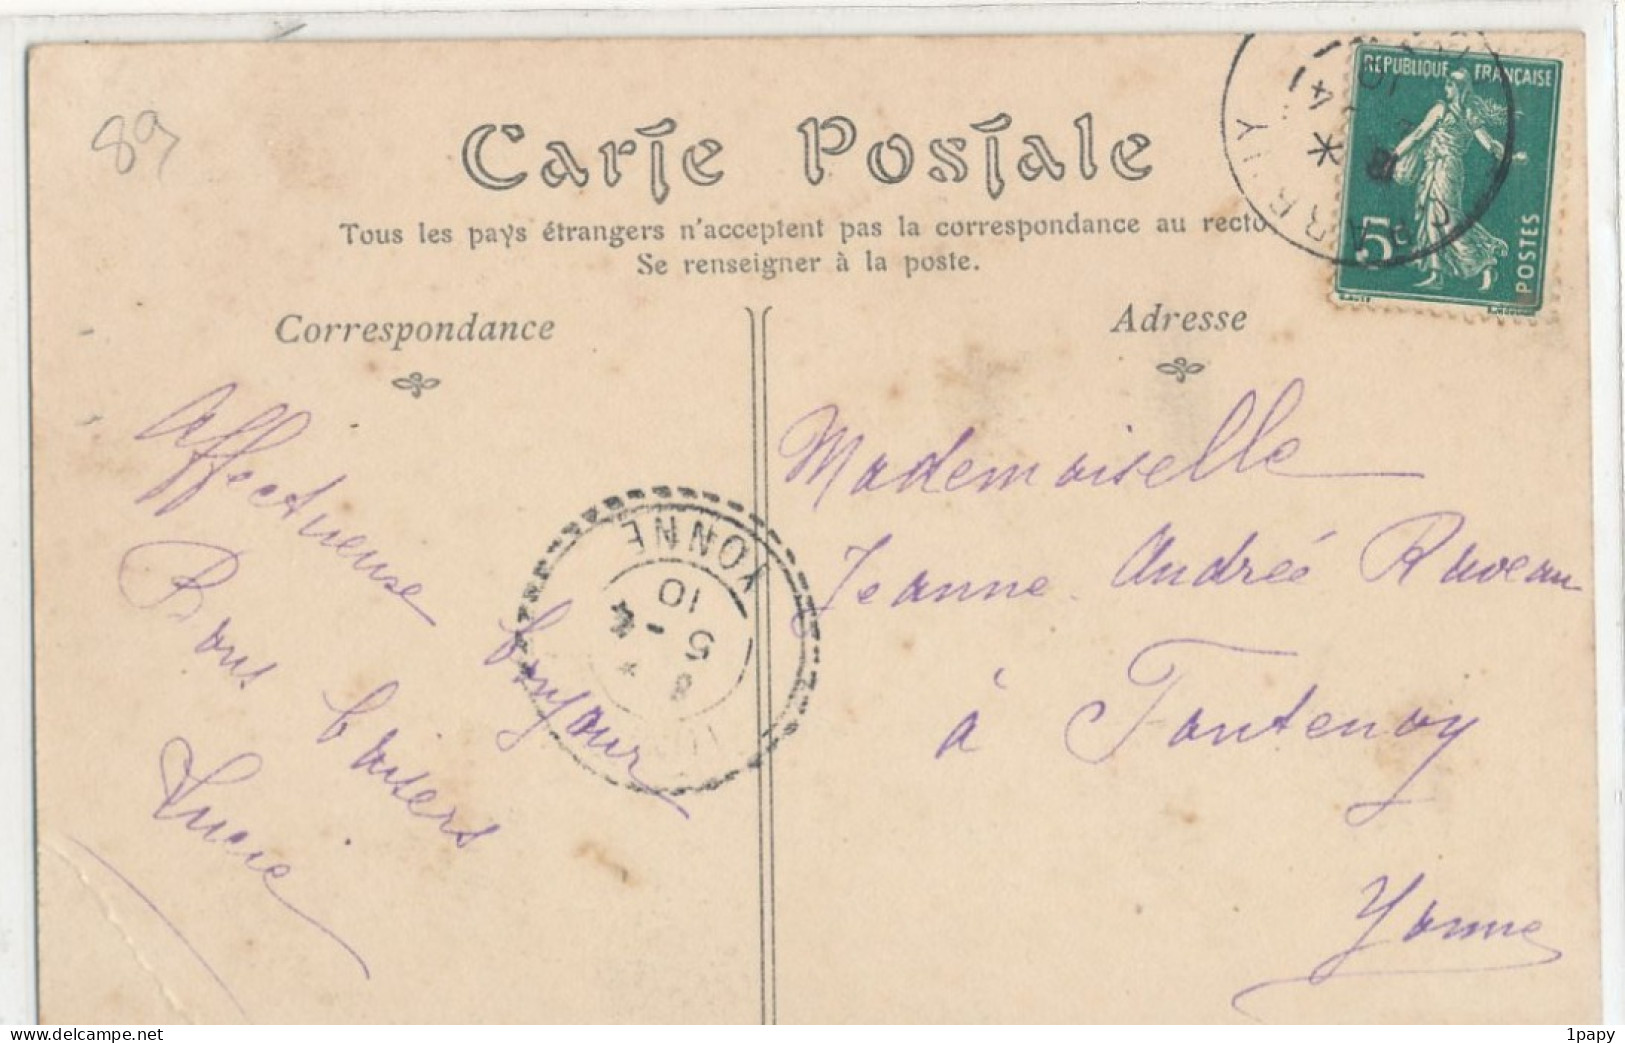 89
Carte Postale
Tous les pays étrangers n'acceptent pas la correspondance au recto
Se renseigner à la poste.
RÉPUBLIQUE FRANÇAISE
5c
POSTES
Correspondance
Adresse
Affectueuse bonjour
Bons baisers
Lucie
YONNE
8
5 - 4
10
Mademoiselle
Jeanne Andrée Raveau
à Fontenoy
Yonne
https://www.delcampe.net
1papy